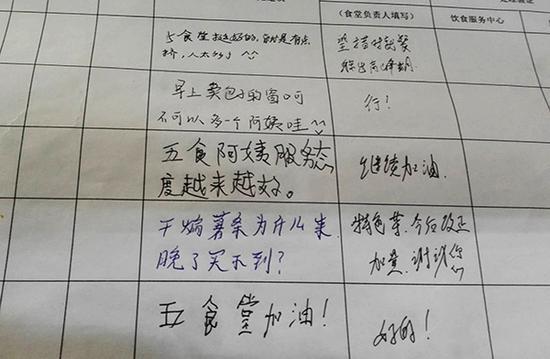 (食堂负责人填写)
饮食服务中心
5食堂挺好的,就是有点
挤,人太多了
望错时就餐
高峰期.
早上卖包子的窗口可
不可以多一个阿姨哇
行!
五食阿姨服务态
度越来越好。
继续加油.
干煸薯条为什么来
晚了买不到?
特色菜.今后改正
加量.谢谢你
五食堂加油!
好的!